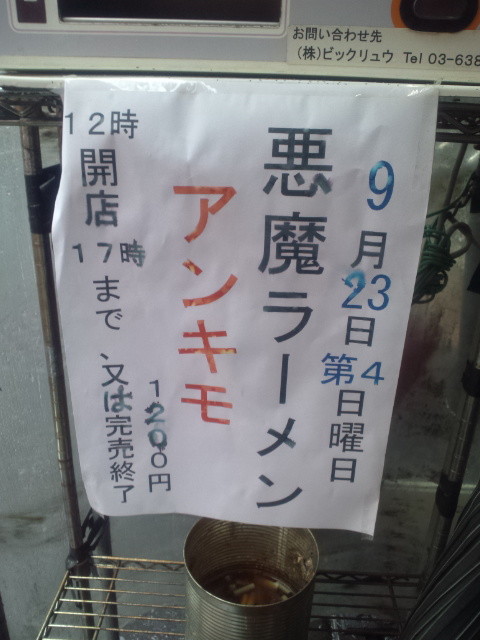 お問い合わせ先
(株)ビックリュウ Tel 03-638
9月23日第4日曜日
悪魔ラーメン
アンキモ
1200円
12時開店
17時まで、又は完売終了